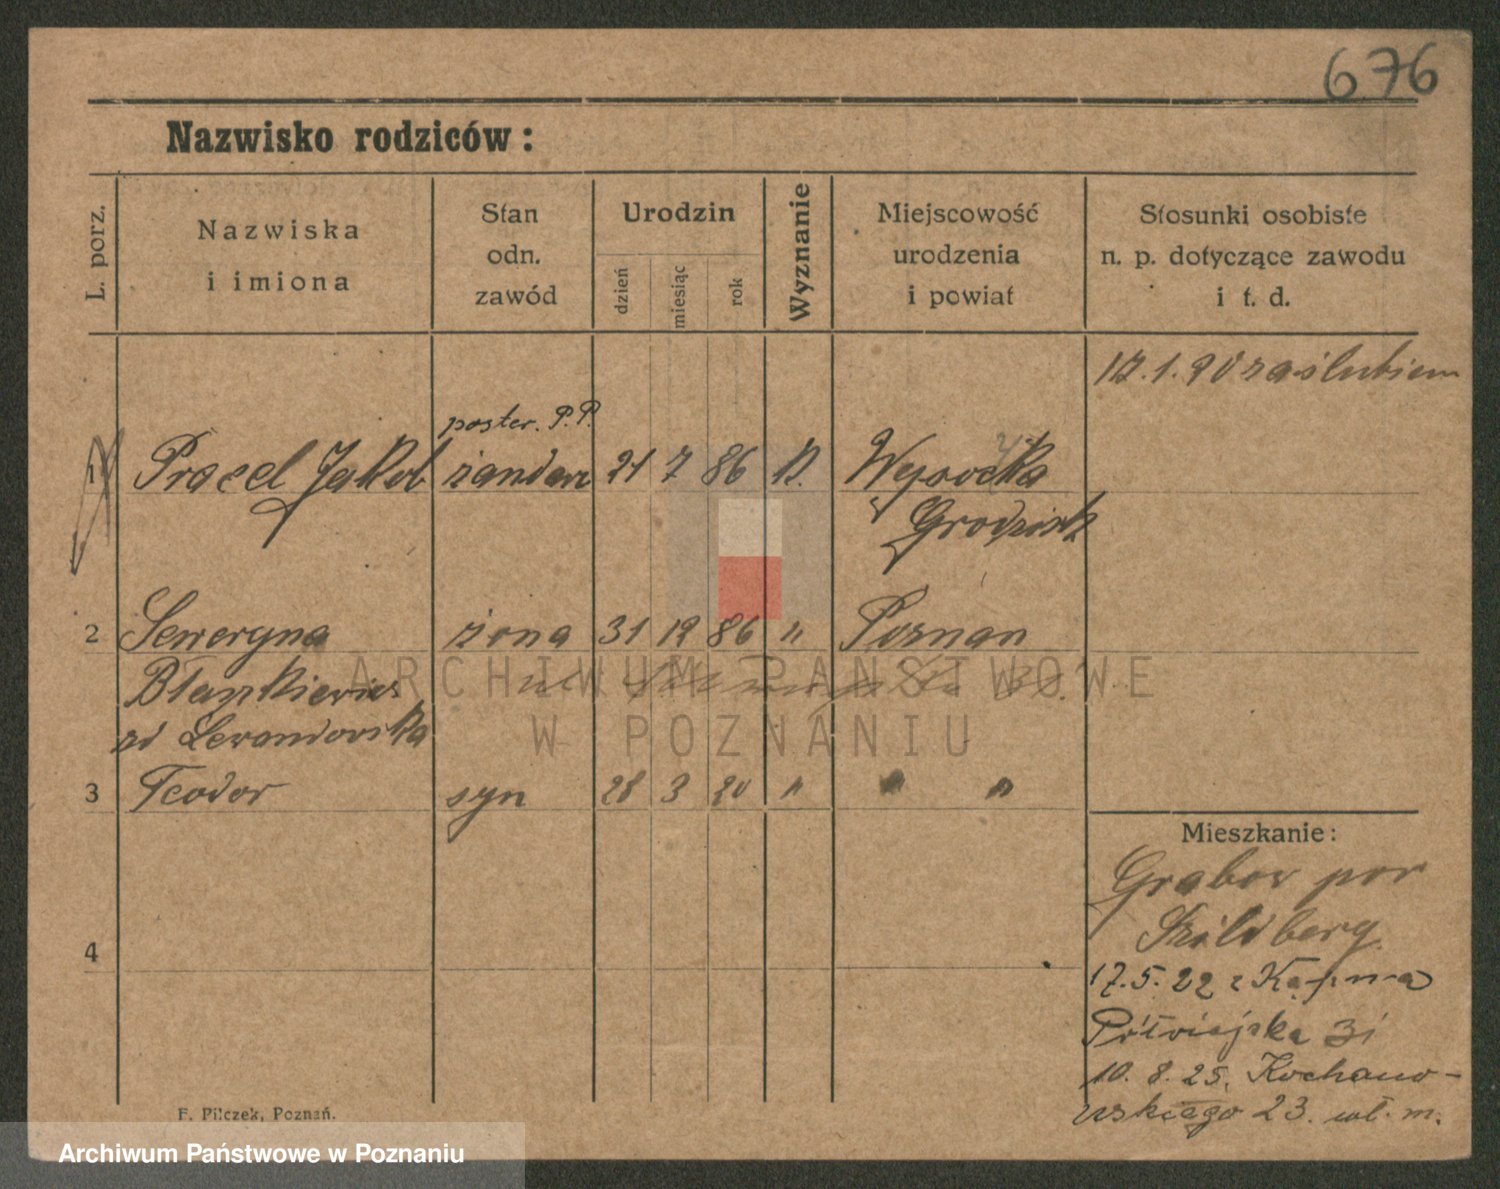 676
Nazwisko rodziców:
L. porz.
Nazwiska
i imiona
Stan
odn.
zawód
Urodzin
dzień
miesiąc
rok
Wyznanie
Miejscowość
urodzenia
i powiat
Stosunki osobiste
n. p. dotyczące zawodu
i t. d.
17.1.20 zaślubiem
poster. P.P.
1 Pracel Jakob żandarm 21 7 86 K. Wysoczka
Grodzisk
2 Seweryna żona 31 12 86 " Poznan
Blankiewicz
zd Lewandowska
3 Teodor syn 28 3 20 " " "
4
Mieszkanie:
Grabow por
Szildberg.
17.5.22 z Kępna
Półwiejska 31
10.8.25. Kochano-
wskiego 23. wł. m.
F. Pilczek, Poznań.
ARCHIWUM PAŃSTWOWE
W POZNANIU
Archiwum Państwowe w Poznaniu